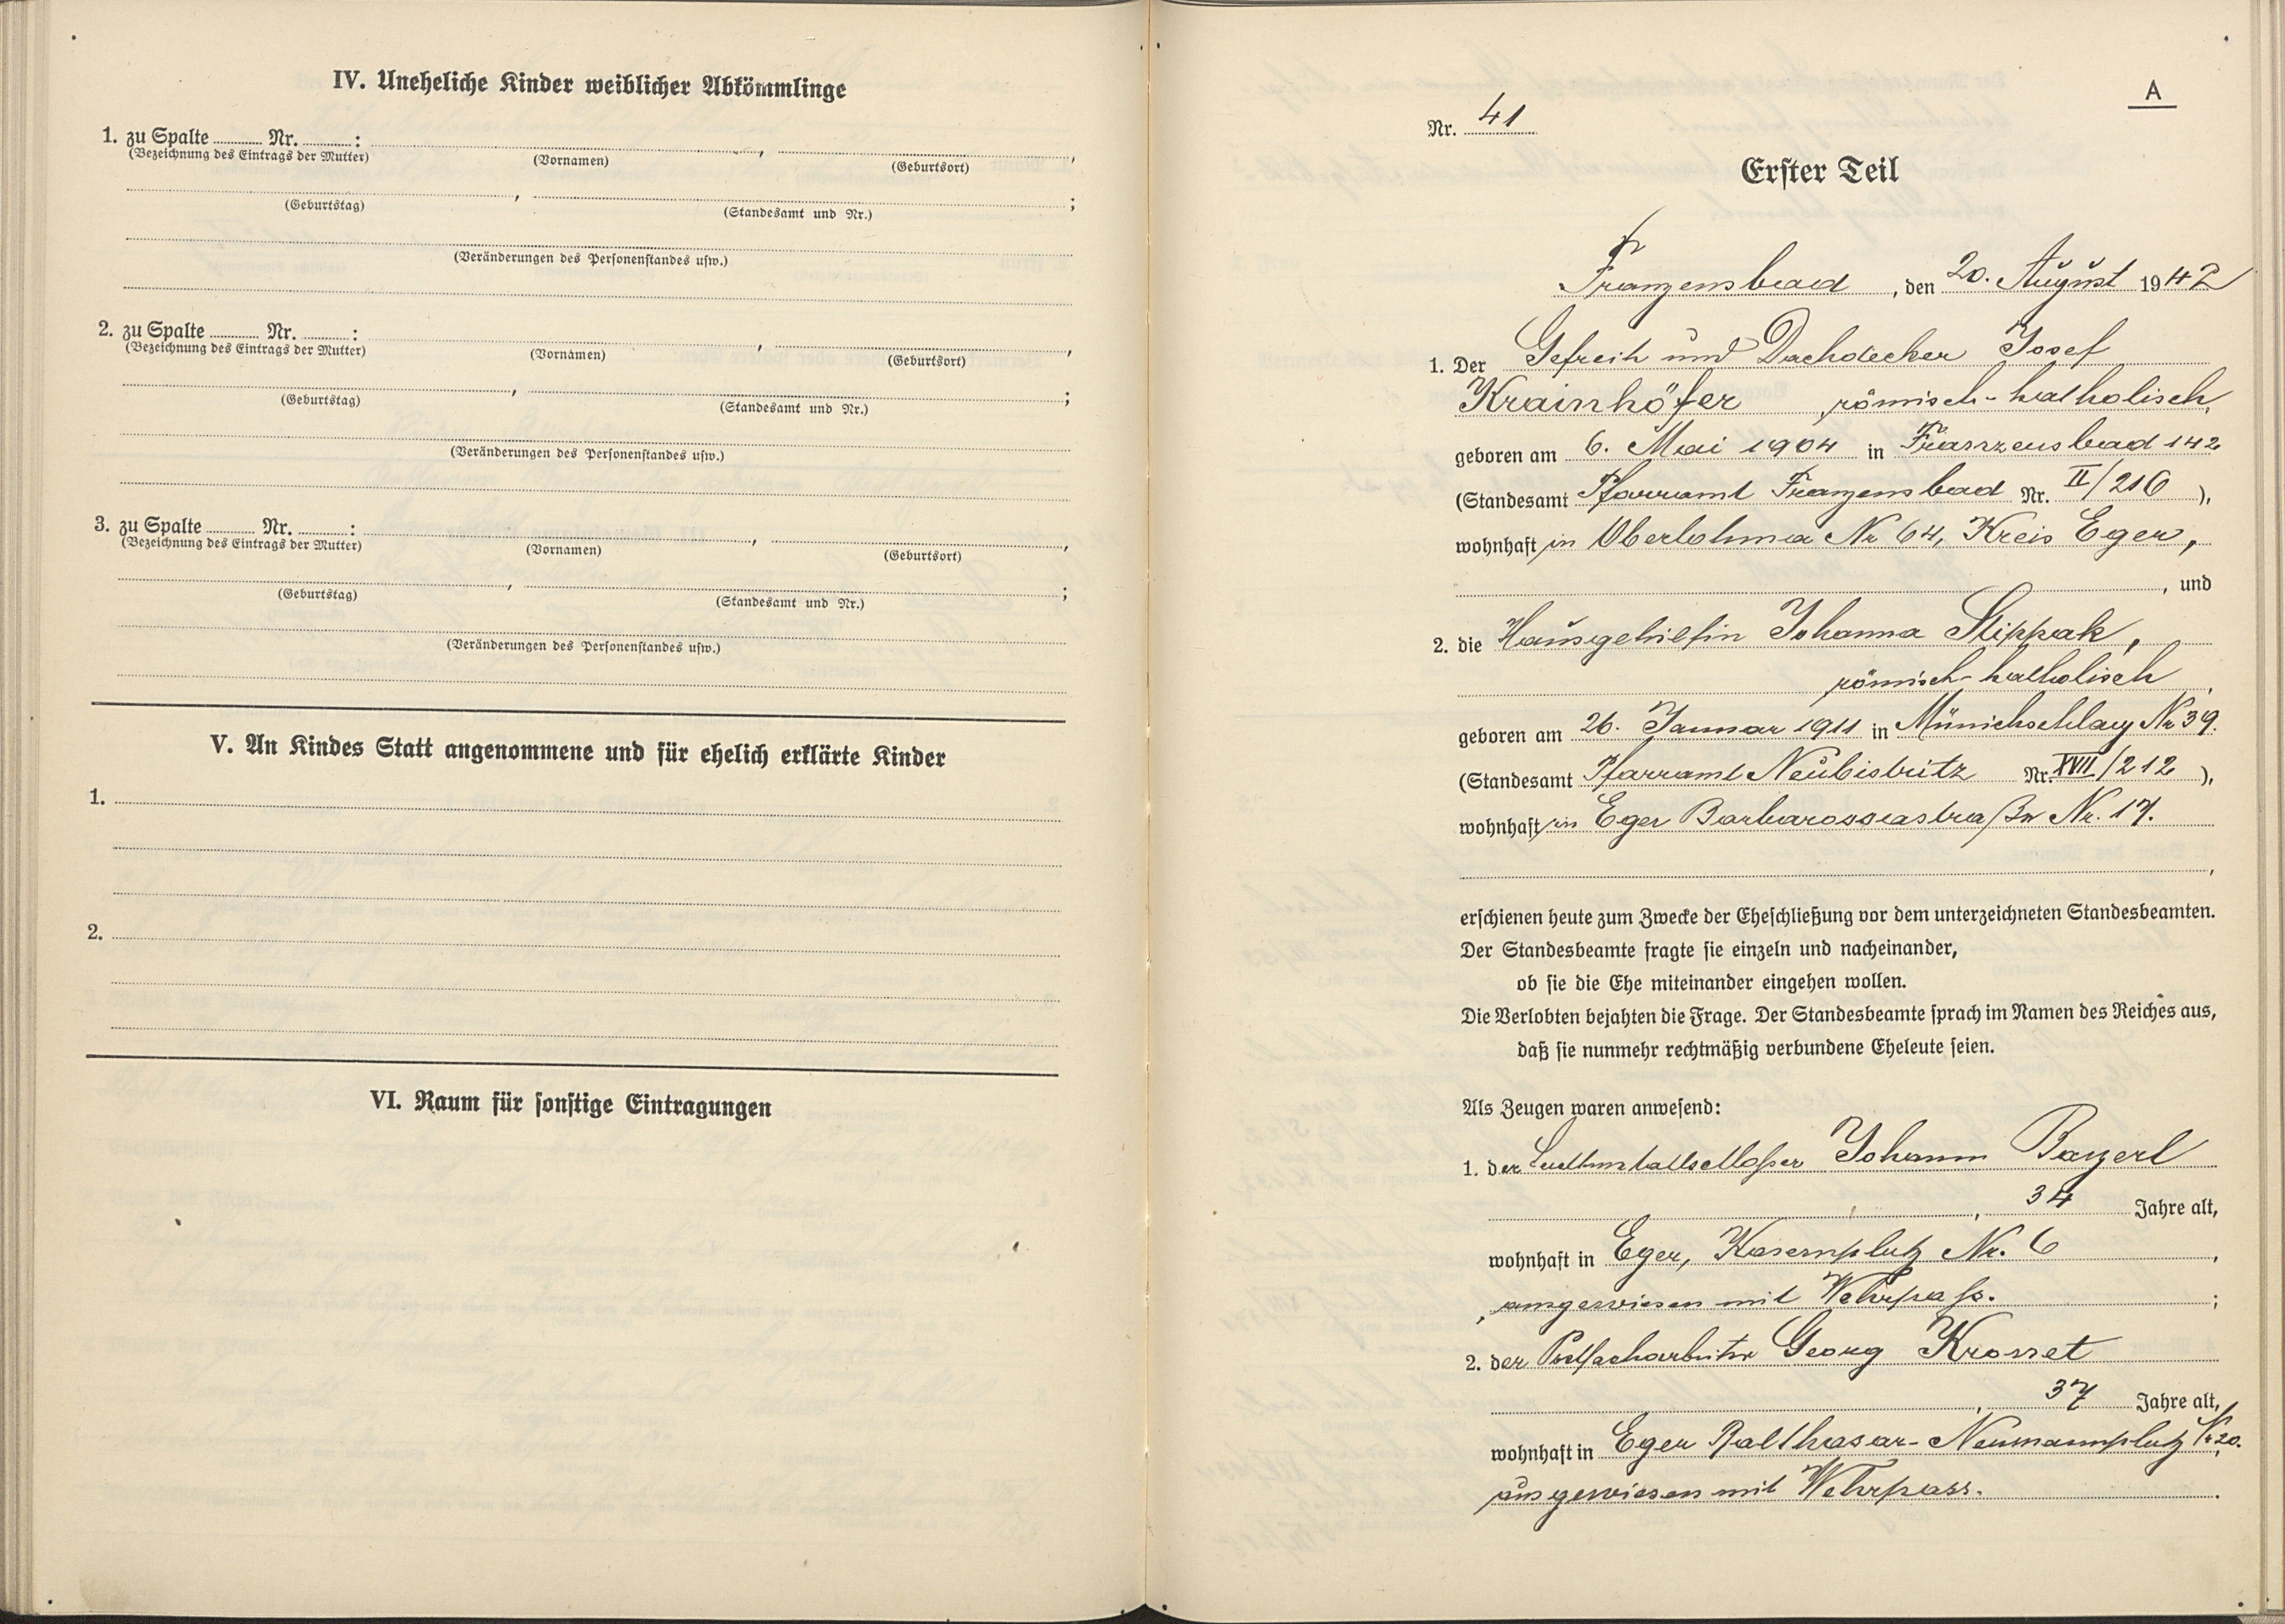 IV. Uneheliche Kinder weiblicher Abkömmlinge
1. zu Spalte ........ Nr. ........:
(Bezeichnung des Eintrags der Mutter) (Vornamen) (Geburtsort)
(Geburtstag) (Standesamt und Nr.)
(Veränderungen des Personenstandes usw.)
2. zu Spalte ........ Nr. ........:
(Bezeichnung des Eintrags der Mutter) (Vornamen) (Geburtsort)
(Geburtstag) (Standesamt und Nr.)
(Veränderungen des Personenstandes usw.)
3. zu Spalte ........ Nr. ........:
(Bezeichnung des Eintrags der Mutter) (Vornamen) (Geburtsort)
(Geburtstag) (Standesamt und Nr.)
(Veränderungen des Personenstandes usw.)
V. An Kindes Statt angenommene und für ehelich erklärte Kinder
1.
2.
VI. Raum für sonstige Eintragungen
A
Nr. 41
Erster Teil
Franzensbad, den 20. August 1942
1. Der Gefreite und Dachdecker Josef
Krainhöfer römisch-katholisch,
geboren am 6. Mai 1904 in Franzensbad 142
(Standesamt Pfarramt Franzensbad Nr. II/216),
wohnhaft in Oberlohma Nr 64, Kreis Eger,
, und
2. die Hausgehilfin Johanna Slippak,
römisch-katholisch,
geboren am 26. Januar 1911 in Münichschlag Nr 39.
(Standesamt Pfarramt Neubistritz Nr. XVII/212),
wohnhaft in Eger Barbarossastraße Nr. 17.
erschienen heute zum Zwecke der Eheschließung vor dem unterzeichneten Standesbeamten.
Der Standesbeamte fragte sie einzeln und nacheinander,
ob sie die Ehe miteinander eingehen wollen.
Die Verlobten bejahten die Frage. Der Standesbeamte sprach im Namen des Reiches aus,
daß sie nunmehr rechtmäßig verbundene Eheleute seien.
Als Zeugen waren anwesend:
1. der Johann Bayerl
, 34 Jahre alt,
wohnhaft in Eger, Kasernplatz Nr. 6,
ausgewiesen mit Wehrpaß.;
2. der Postfacharbeiter Georg Krosset
, 37 Jahre alt,
wohnhaft in Eger Balthasar-Neumannplatz Nr 20.
ausgewiesen mit Wehrpass.